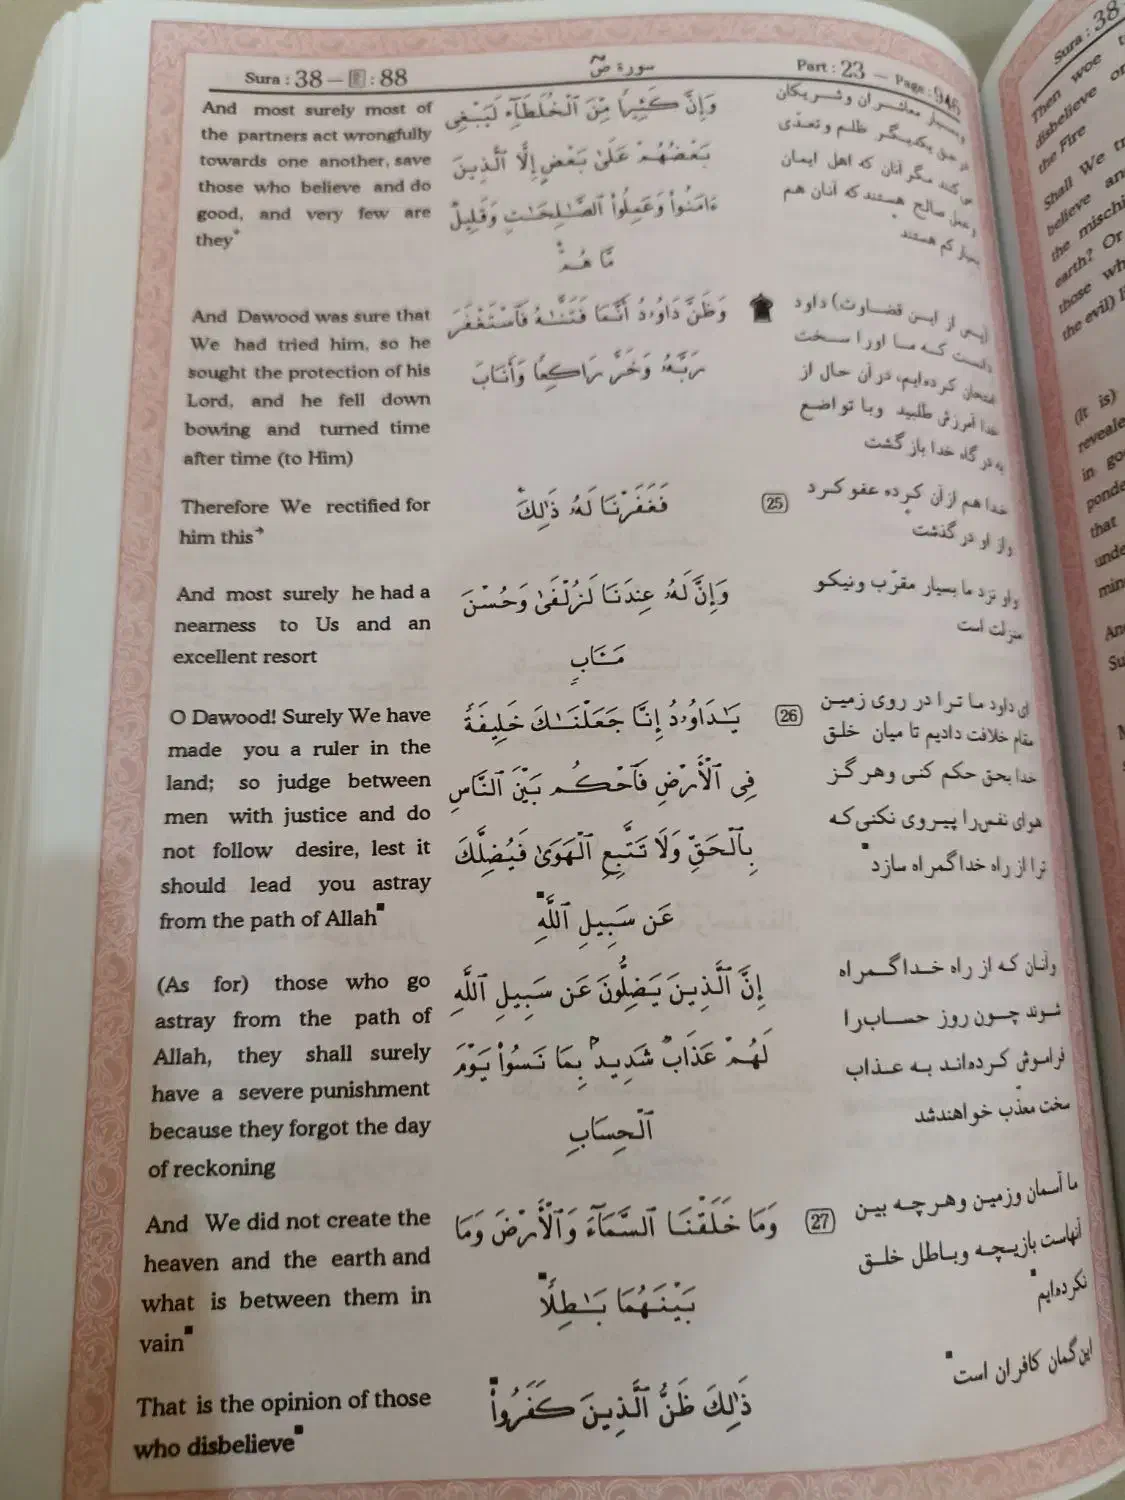 Sura : 38 — : 88
سورة صٓ
Part : 23 — Page : 946
And most surely most of
the partners act wrongfully
towards one another, save
those who believe and do
good, and very few are
they
And Dawood was sure that
We had tried him, so he
sought the protection of his
Lord, and he fell down
bowing and turned time
after time (to Him)
Therefore We rectified for
him this
And most surely he had a
nearness to Us and an
excellent resort
O Dawood! Surely We have
made you a ruler in the
land; so judge between
men with justice and do
not follow desire, lest it
should lead you astray
from the path of Allah
(As for) those who go
astray from the path of
Allah, they shall surely
have a severe punishment
because they forgot the day
of reckoning
And We did not create the
heaven and the earth and
what is between them in
vain
That is the opinion of those
who disbelieve
وَإِنَّ كَثِيرًا مِّنَ ٱلْخُلَطَآءِ لَيَبْغِى
بَعْضُهُمْ عَلَىٰ بَعْضٍ إِلَّا ٱلَّذِينَ
ءَامَنُوا۟ وَعَمِلُوا۟ ٱلصَّـٰلِحَـٰتِ وَقَلِيلٌ
مَّا هُمْ
وَظَنَّ دَاوُۥدُ أَنَّمَا فَتَنَّـٰهُ فَٱسْتَغْفَرَ
رَبَّهُۥ وَخَرَّ رَاكِعًا وَأَنَابَ
فَغَفَرْنَا لَهُۥ ذَٰلِكَ
25
وَإِنَّ لَهُۥ عِندَنَا لَزُلْفَىٰ وَحُسْنَ
مَـَٔابٍ
يَـٰدَاوُۥدُ إِنَّا جَعَلْنَـٰكَ خَلِيفَةً
26
فِى ٱلْأَرْضِ فَٱحْكُم بَيْنَ ٱلنَّاسِ
بِٱلْحَقِّ وَلَا تَتَّبِعِ ٱلْهَوَىٰ فَيُضِلَّكَ
عَن سَبِيلِ ٱللَّهِ
إِنَّ ٱلَّذِينَ يَضِلُّونَ عَن سَبِيلِ ٱللَّهِ
لَهُمْ عَذَابٌ شَدِيدٌۢ بِمَا نَسُوا۟ يَوْمَ
ٱلْحِسَابِ
وَمَا خَلَقْنَا ٱلسَّمَآءَ وَٱلْأَرْضَ وَمَا
27
بَيْنَهُمَا بَـٰطِلًا
ذَٰلِكَ ظَنُّ ٱلَّذِينَ كَفَرُوا۟
و بسیار معاشران و شریکان
در حق یکدیگر ظلم و تعدّی
می‌کنند مگر آنان که اهل ایمان
و عمل صالح هستند که آنان هم
بسیار کم هستند
(پس از این قضاوت) داود
دانست که ما او را سخت
امتحان کرده‌ایم، در آن حال از
خدا آمرزش طلبید و با تواضع
به درگاه خدا بازگشت
خدا هم از آن کرده عفو کرد
و از او در گذشت
و او نزد ما بسیار مقرّب و نیکو
منزلت است
ای داود ما ترا در روی زمین
مقام خلافت دادیم تا میان خلق
خدا بحق حکم کنی و هرگز
هوای نفس را پیروی نکنی که
ترا از راه خدا گمراه سازد
و آنان که از راه خدا گمراه
شوند چون روز حساب را
فراموش کرده‌اند به عذاب
سخت معذّب خواهند شد
ما آسمان و زمین و هر چه بین
آنهاست بازیچه و باطل خلق
نکرده‌ایم
این گمان کافران است
Sura : 38
Then woe
disbelieve
the Fire
Shall We
believe
the
earth? Or
those
the evil)
(It is)
in
that